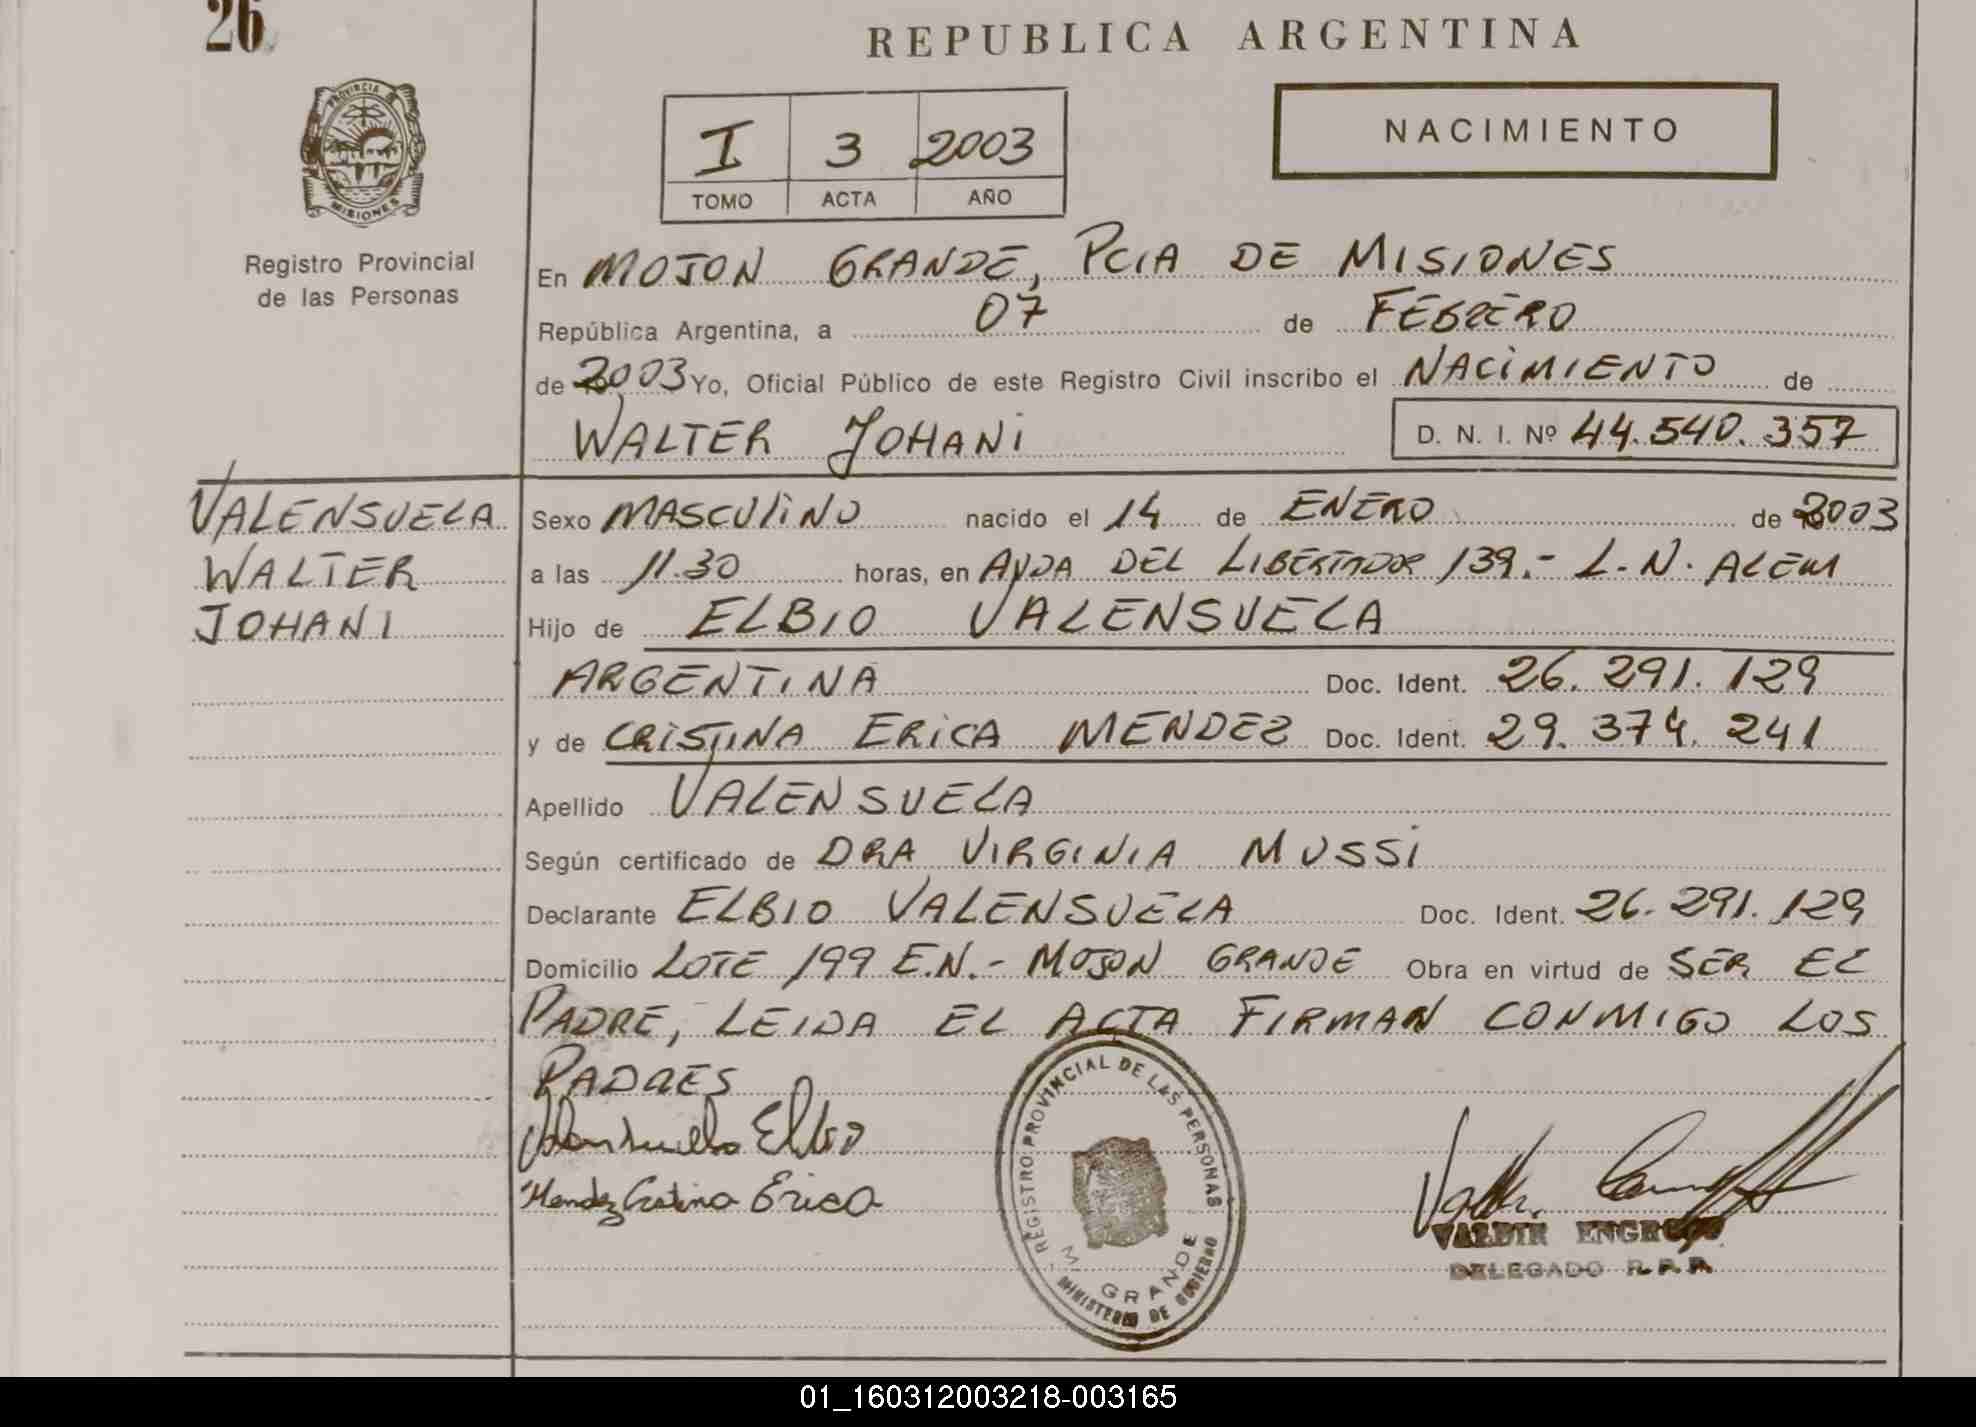 26
REPUBLICA ARGENTINA
PROVINCIA DE
MISIONES
Registro Provincial
de las Personas
I 3 2003
TOMO ACTA AÑO
NACIMIENTO
En MOJON GRANDE, PCIA DE MISIONES
República Argentina, a 07 de FEBRERO
de 2003 Yo, Oficial Público de este Registro Civil inscribo el NACIMIENTO de
WALTER JOHANI D. N. I. Nº 44.540.357
VALENSUELA
WALTER
JOHANI
Sexo MASCULINO nacido el 14 de ENERO de 2003
a las 11.30 horas, en AVDA DEL LIBERTADOR 139.- L.N. ALEM
Hijo de ELBIO VALENSUELA
ARGENTINA Doc. Ident. 26.291.129
y de CRISTINA ERICA MENDEZ Doc. Ident. 29.374.241
Apellido VALENSUELA
Según certificado de DRA VIRGINIA MUSSI
Declarante ELBIO VALENSUELA Doc. Ident. 26.291.129
Domicilio LOTE 199 E.N.- MOJON GRANDE Obra en virtud de SER EL
PADRE, LEIDA EL ACTA FIRMAN CONMIGO LOS
PADRES
Valensuela Elbio
Mendez Cristina Erica
REGISTRO PROVINCIAL DE LAS PERSONAS
M. GRANDE
MINISTERIO DE GOBIERNO
VALDIR
DELEGADO R.P.P.
01_160312003218-003165